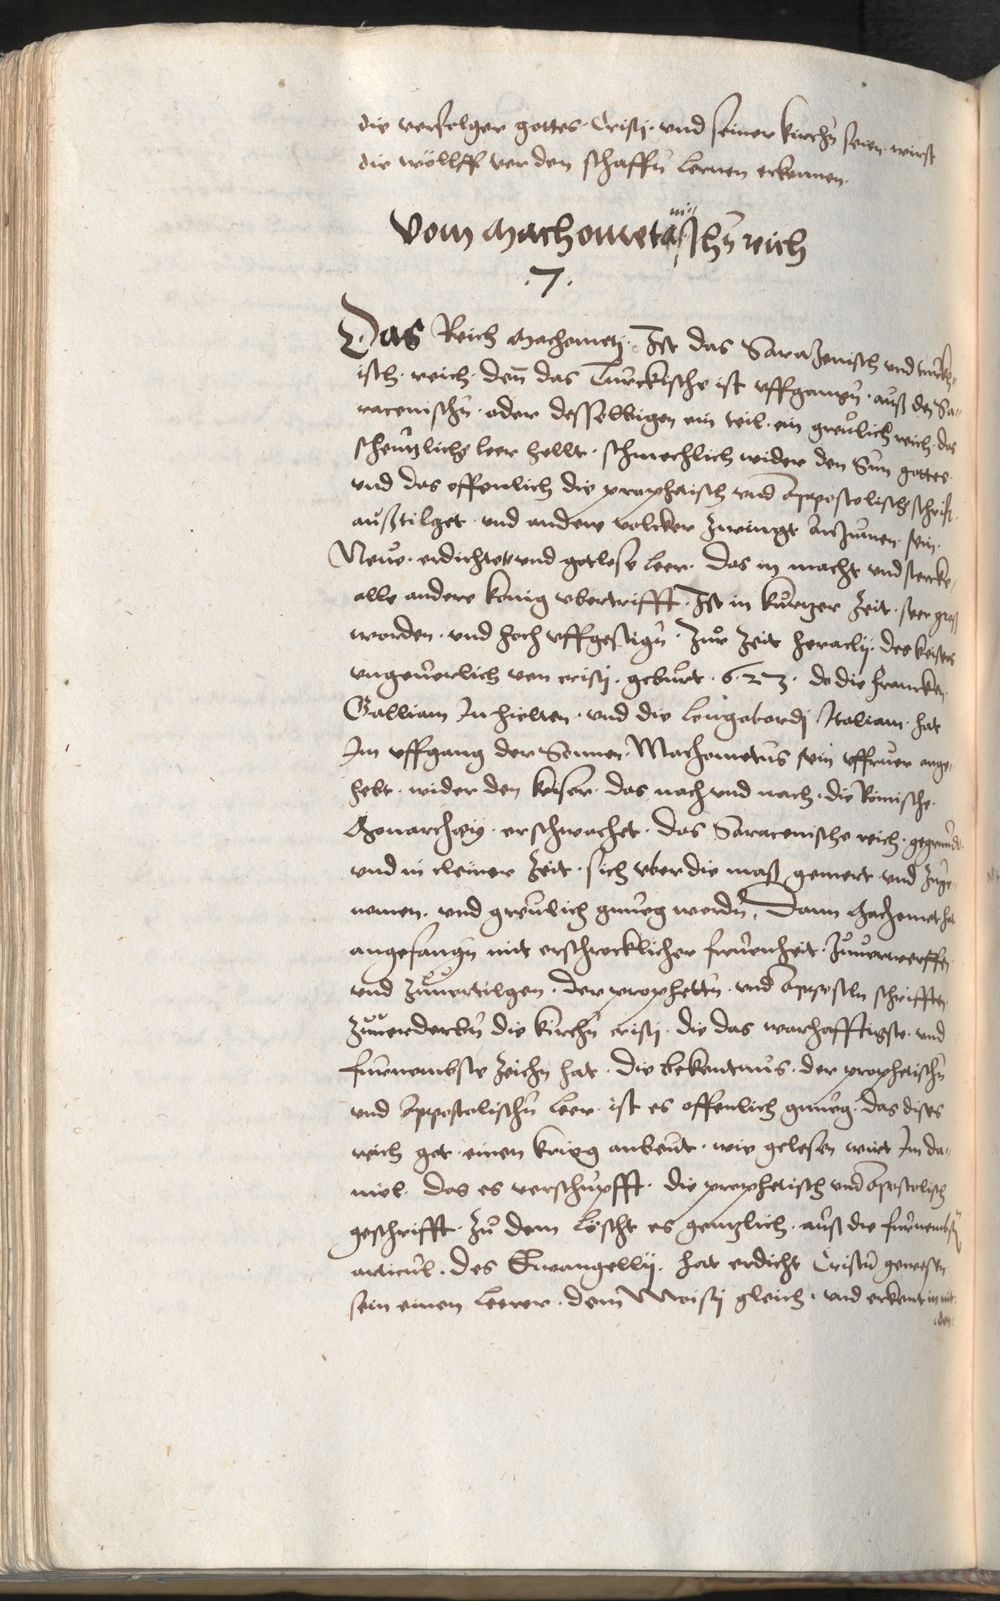 die verfolger gottes · Cristj · und seiner kirchn̄ seien · wirst
die wölff vor den schaffn̄ lernen erkennen ·
Vom Machometanischn̄ reich
· 7 ·
Das Reich Machometj · Ist das Sarazenisch und turck-
isch · reich · den̄ das Turckische ist uffgangn̄ · auß den Sa-
racenischn̄ · oder desselbigen ein teil · ein greulich reich · das
scheutzliche leer hellt · schmechlich wider den Sun gottes ·
und das offenlich die prophetisch und Appostolisch schrift ·
außtilget · und andere volcker zwingt anzunemen sein ·
Neue · erdichte und gotlose leer · das in macht und stercke ·
alle andere konig ubertrifft · Ist in kurtzer zeit · seer groß
worden · und hoch uffgestign̄ · Zur zeit heraclij · des keisers
ungeuerlich von cristj · geburt · 623 · do die francken
Galliam In hielten · und die longobardj Italiam · hat
Im uffgang der Sonnen · Machometus sein uffruer ange-
hebt · wider den keiser · das nach und nach · die Römische ·
Monarchey · erschwachet · das Saracenische reich · gegrundt
und in cleiner zeit · sich uber die maß gemert · und zuge-
nomen · und greulich gnueg wordn̄ · Dann Machomet hat
angefangn̄ mit erschrecklicher freuenheit · zuuerwerffen
und zuuertilgen · der prophettn̄ · und Apposteln schrifften
zuuerderbn̄ die kirchn̄ cristj · die das warhafftigste · und
furnembste zeichn hat · die bekentnus · der prophetischn̄
und Appostolischn̄ leer · ist es offenlich gnueg · das dises
reich got · einen krieg anbeut · wie gelesen wirt Im da-
niel · das es verschupfft · die prophetisch und Apostolisch
geschrifft · zu dem löscht es gentzlich · auß die furnembsten
articul · des Euangelij · hat erdicht Cristū gewesen
sein einen leerer · dem Moisj gleich · und erkent in nit
den